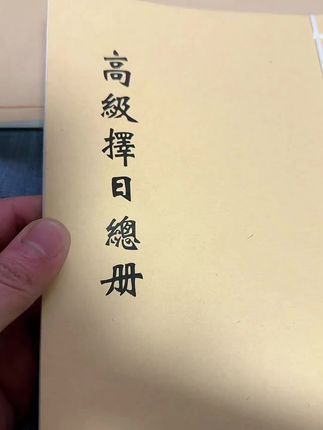 高級擇日總册